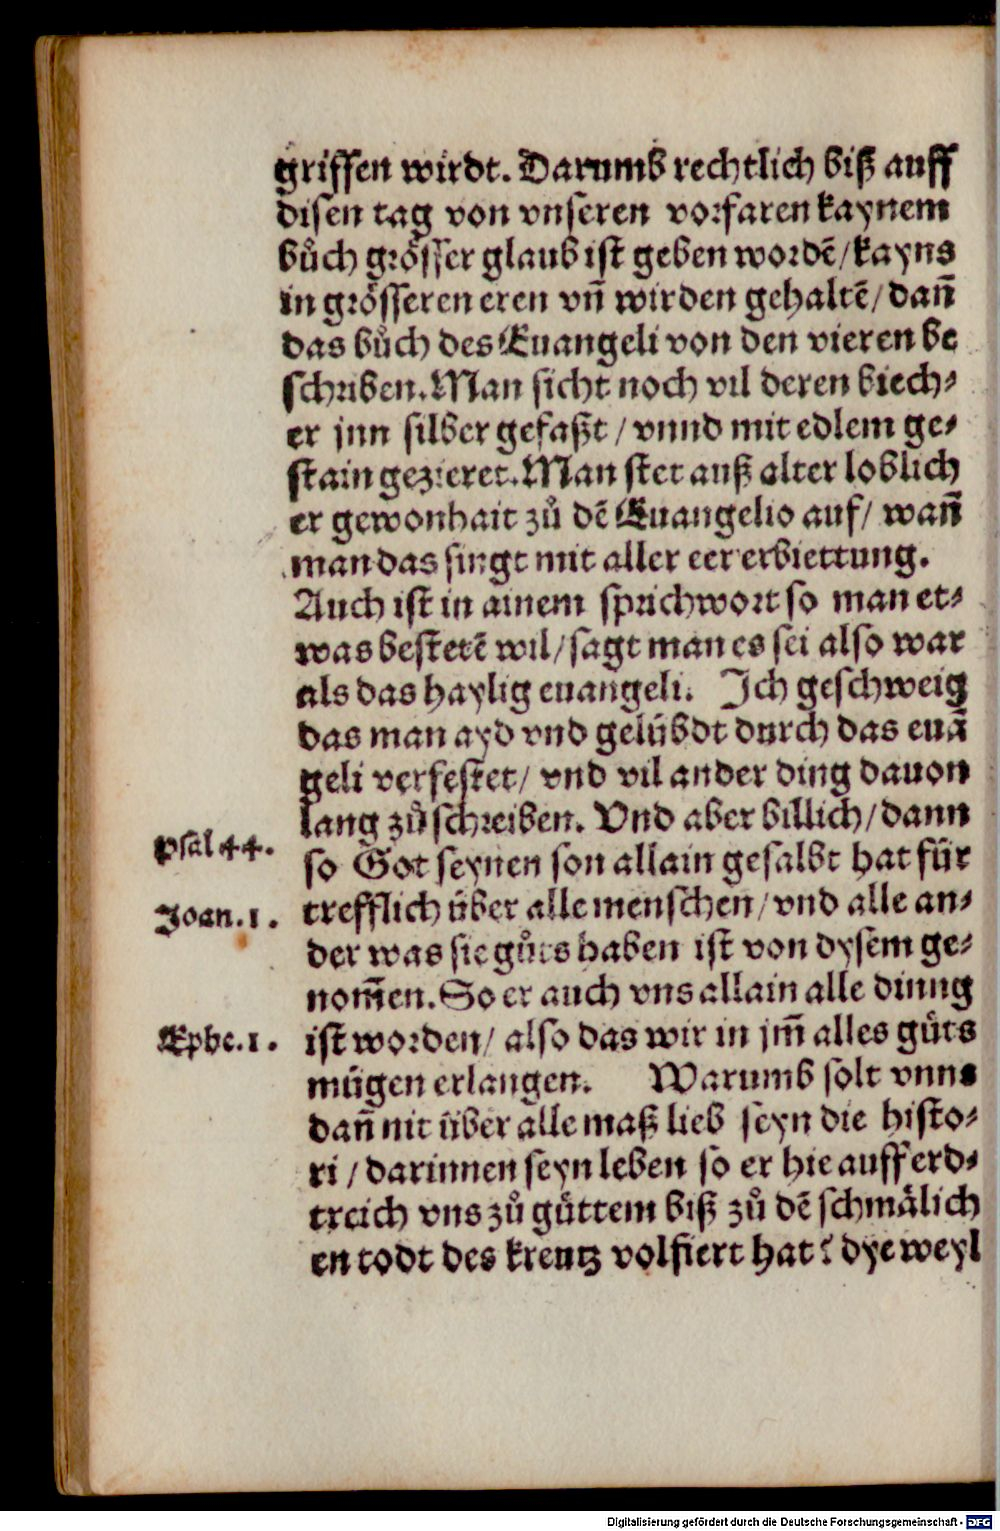 griffen wirdt. Darumb rechtlich biß auff
disen tag von vnseren vorfaren kaynem
bůch grösser glaub ist geben wordē/kayns
in grösseren eren vn̄ wirden gehaltē/dan̄
das bůch des Euangeli von den vieren be
schriben. Man sicht noch vil deren biech⸗
er jnn silber gefaßt / vnnd mit edlem ge⸗
stain gezieret. Man stet auß alter loblich
er gewonhait zů dē Euangelio auf/ wan̄
man das singt mit aller eer erbiettung.
Auch ist in ainem sprichwort so man et⸗
was bestetē wil/sagt man es sei also war
als das haylig euangeli. Ich geschweig
das man ayd vnd gelübdt durch das euā
geli verfestet/ vnd vil ander ding dauon
lang zů schreiben. Vnd aber billich/dann
psal 44.
so Got seynen son allain gesalbt hat für
Joan.1.
trefflich über alle menschen/vnd alle an⸗
der was sie gůts haben ist von dysem ge⸗
nom̄en. So er auch vns allain alle dinng
Ephe.1.
ist worden/ also das wir in jm̄ alles gůts
mügen erlangen. Warumb solt vnns
dan̄ nit über alle maß lieb seyn die histo⸗
ri / darinnen seyn leben so er hie auff erd⸗
treich vns zů gůttem biß zů dē schmälich
en todt des kreutz volfiert hat? dye weyl
Digitalisierung gefördert durch die Deutsche Forschungsgemeinschaft - DFG